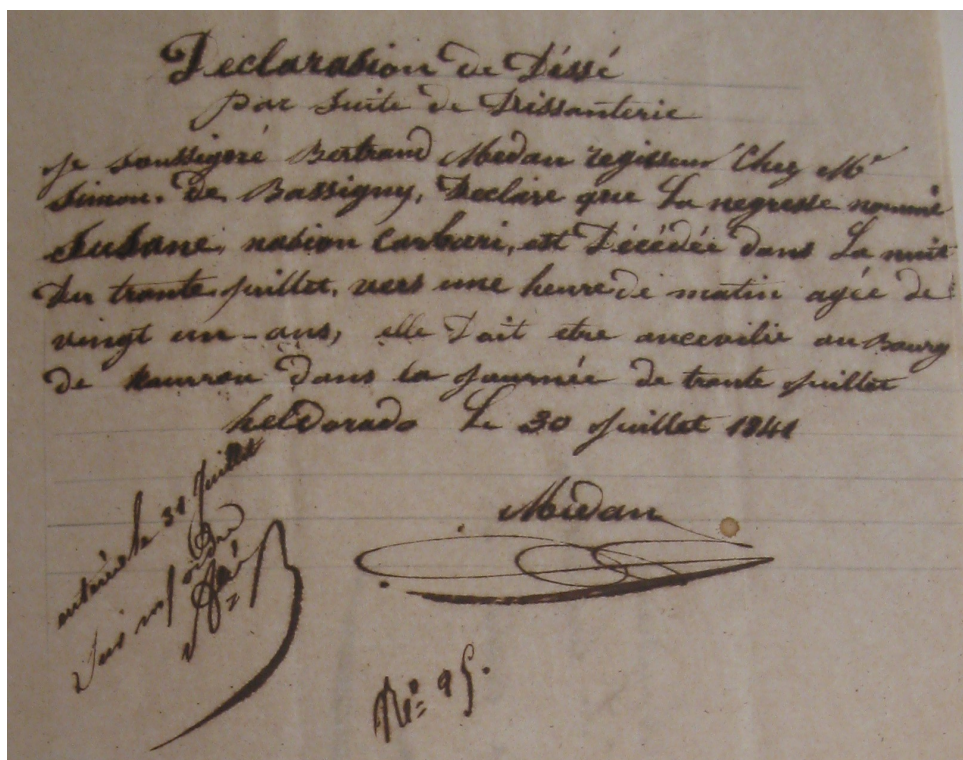 Declarasion de Déssé
par suite de Dissanterie
je soussigné Bertrand Medan regisseur Chez Mr
Simon. De Bassigny, Declare que La negresse nommé
Susane, nasion Carbari, est Décédée dans La nuit
Du trante juillet, vers une heure de matin agée de
vingt un-ans, elle Doit etre ancevilie au Bourg
de Rourrou Dans la journée de trante juillet
helDorado Le 30 juillet 1841
Médan
enterrée le 31 juillet
Nro 95.